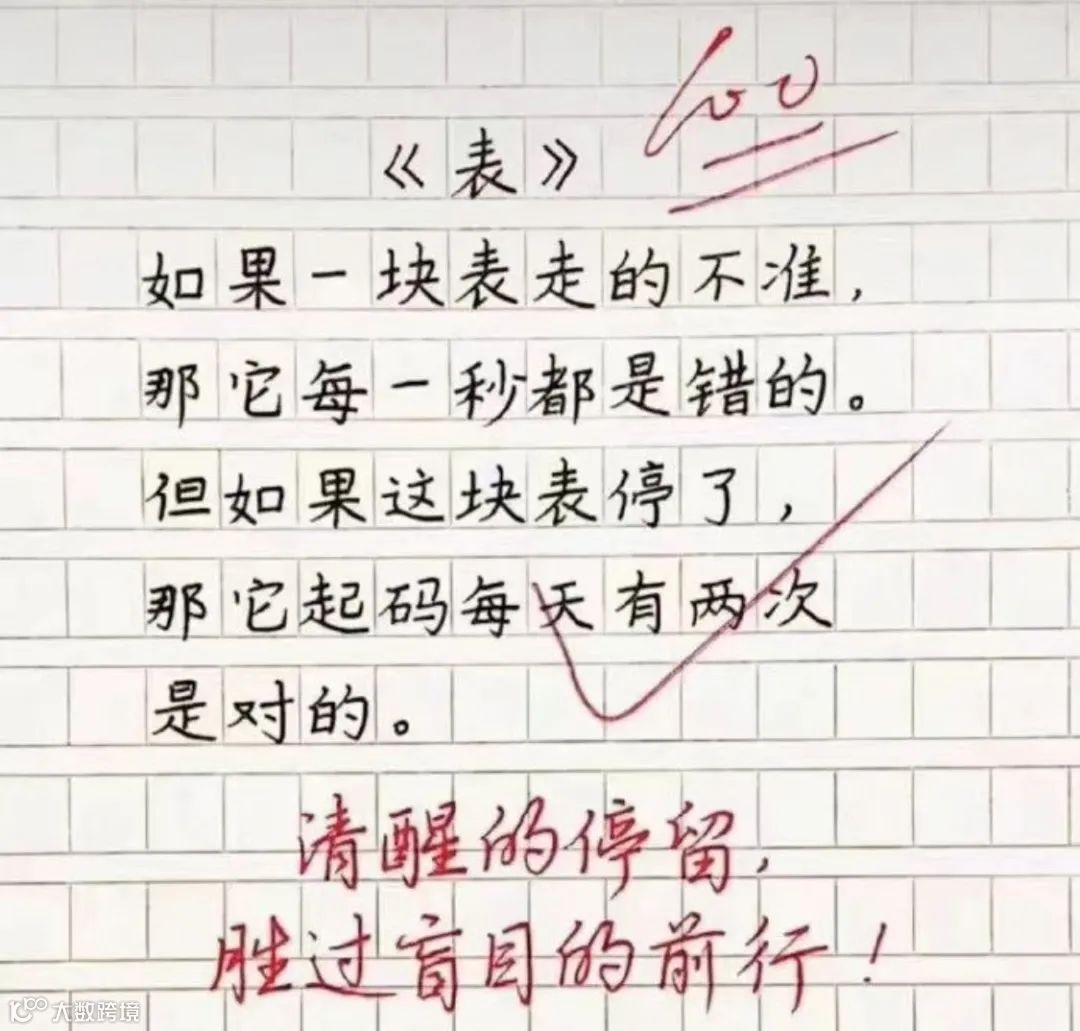 100
《表》
如果一块表走的不准，
那它每一秒都是错的。
但如果这块表停了，
那它起码每天有两次
是对的。
清醒的停留，
胜过盲目的前行！
大数跨境